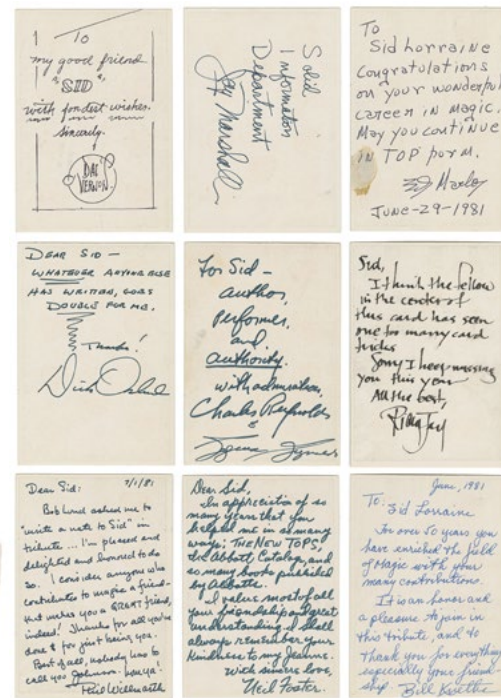 To
my good friend
"SID"
with fondest wishes.
Sincerely.
DAI
VERNON.
Solid
Information
Department
Jay Marshall
To
Sid Lorraine
Congratulations
on your wonderful
career in magic.
May you continue
in TOP form.
Ed Marlo
JUNE-29-1981
DEAR SID —
WHATEVER ANYONE ELSE
HAS WRITTEN, GOES
DOUBLE FOR ME.
Thanks!
For Sid —
author,
performer,
and
authority.
with admiration,
Charles Reynolds
Sid,
I think the fellow
in the center of
this card has seen
one too many card
tricks
Sorry I keep missing
you this year
All the best,
Ricky Jay
Dear Sid:
7/1/81
Bob Lund asked me to
"write a note to Sid" in
tribute ... I'm pleased and
delighted and honored to do
so. I consider anyone who
contributes to magic a friend -
that makes you a GREAT friend,
indeed! Thanks for all you've
done & for just being you.
Best of all, nobody has to
call you Johnson.
Phil Willmarth
Dear Sid,
In appreciation of so
many years that you
helped me in so many
ways: THE NEW TOPS,
the Abbott Catalogs, and
so many books published
by Abbotts.
I value most of all
your friendship and great
understanding. I shall
always remember your
kindness to my Jeanne.
With sincere love,
Neil Foster
June, 1981
To: Sid Lorraine
For over 50 years you
have enriched the field
of Magic with your
many contributions.
It is an honor and
a pleasure to join in
this tribute, and to
thank you for everything
especially your friend-
ship -